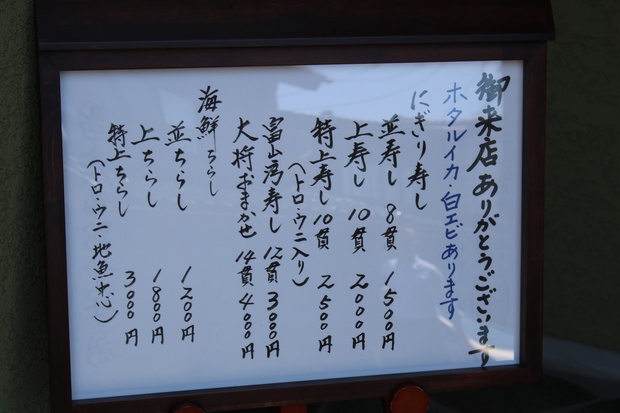 御来店ありがとうございます
ホタルイカ・白エビあります
にぎり寿し
並寿し 8貫 1500円
上寿し 10貫 2000円
特上寿し 10貫 2500円
(トロ・ウニ入り)
富山湾寿し 12貫 3000円
大将おまかせ 14貫 4000円
海鮮ちらし
並ちらし 1200円
上ちらし 1800円
特上ちらし 3000円
(トロ・ウニ・地魚中心)